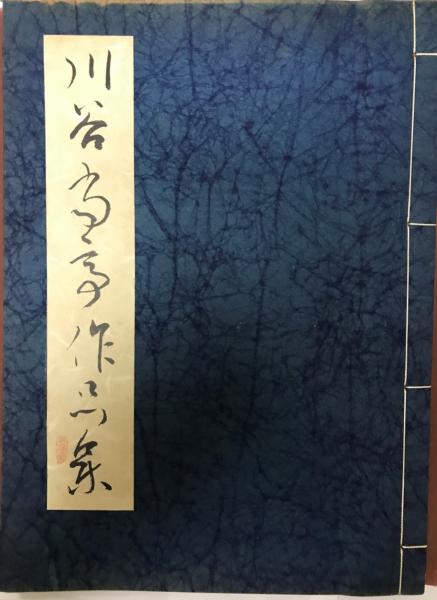 川谷尚亭作品集